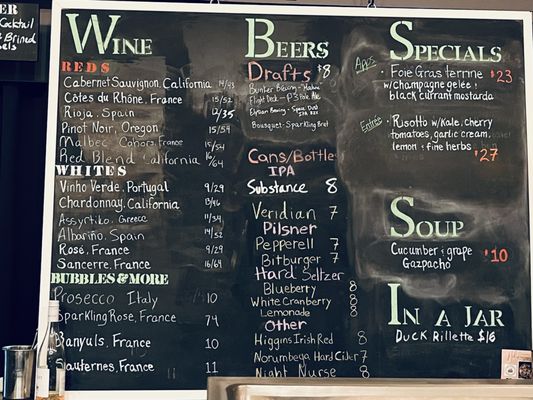 Cocktail
& Brined
els
WINE
REDS
Cabernet Sauvignon, California 14/49
Côtes du Rhône, France 15/52
Rioja, Spain 12/35
Pinot Noir, Oregon 15/54
Malbec Cahors, France 15/54
Red Blend California 16/64
WHITES
Vinho Verde, Portugal 9/29
Chardonnay, California 13/46
Assyrtiko, Greece 11/34
Albariño, Spain 14/52
Rosé, France 9/29
Sancerre, France 16/69
BUBBLES & MORE
Prosecco Italy 10
Sparkling Rose, France 74
Banyuls, France 10
Sauternes, France 11
BEERS
Drafts $8
Bunker Brewing -
Flight Deck - P3 Pale Ale
Brewing - Space Dust
IPA
Bousquet - Sparkling Brut
Cans/Bottle
IPA
Substance 8
Veridian 7
Pilsner
Pepperell 7
Bitburger 7
Hard Seltzer
Blueberry 8
White Cranberry 8
Lemonade 8
Other
Higgins Irish Red 8
Norumbega Hard Cider 7
Night Nurse 8
SPECIALS
Apps
· Foie Gras terrine $23
w/ Champagne gelée &
black currant mostarda
Entrée
· Risotto w/ Kale, cherry
tomatoes, garlic cream,
lemon & fine herbs $27
SOUP
Cucumber & grape $10
Gazpacho
IN A JAR
Duck Rillette $16